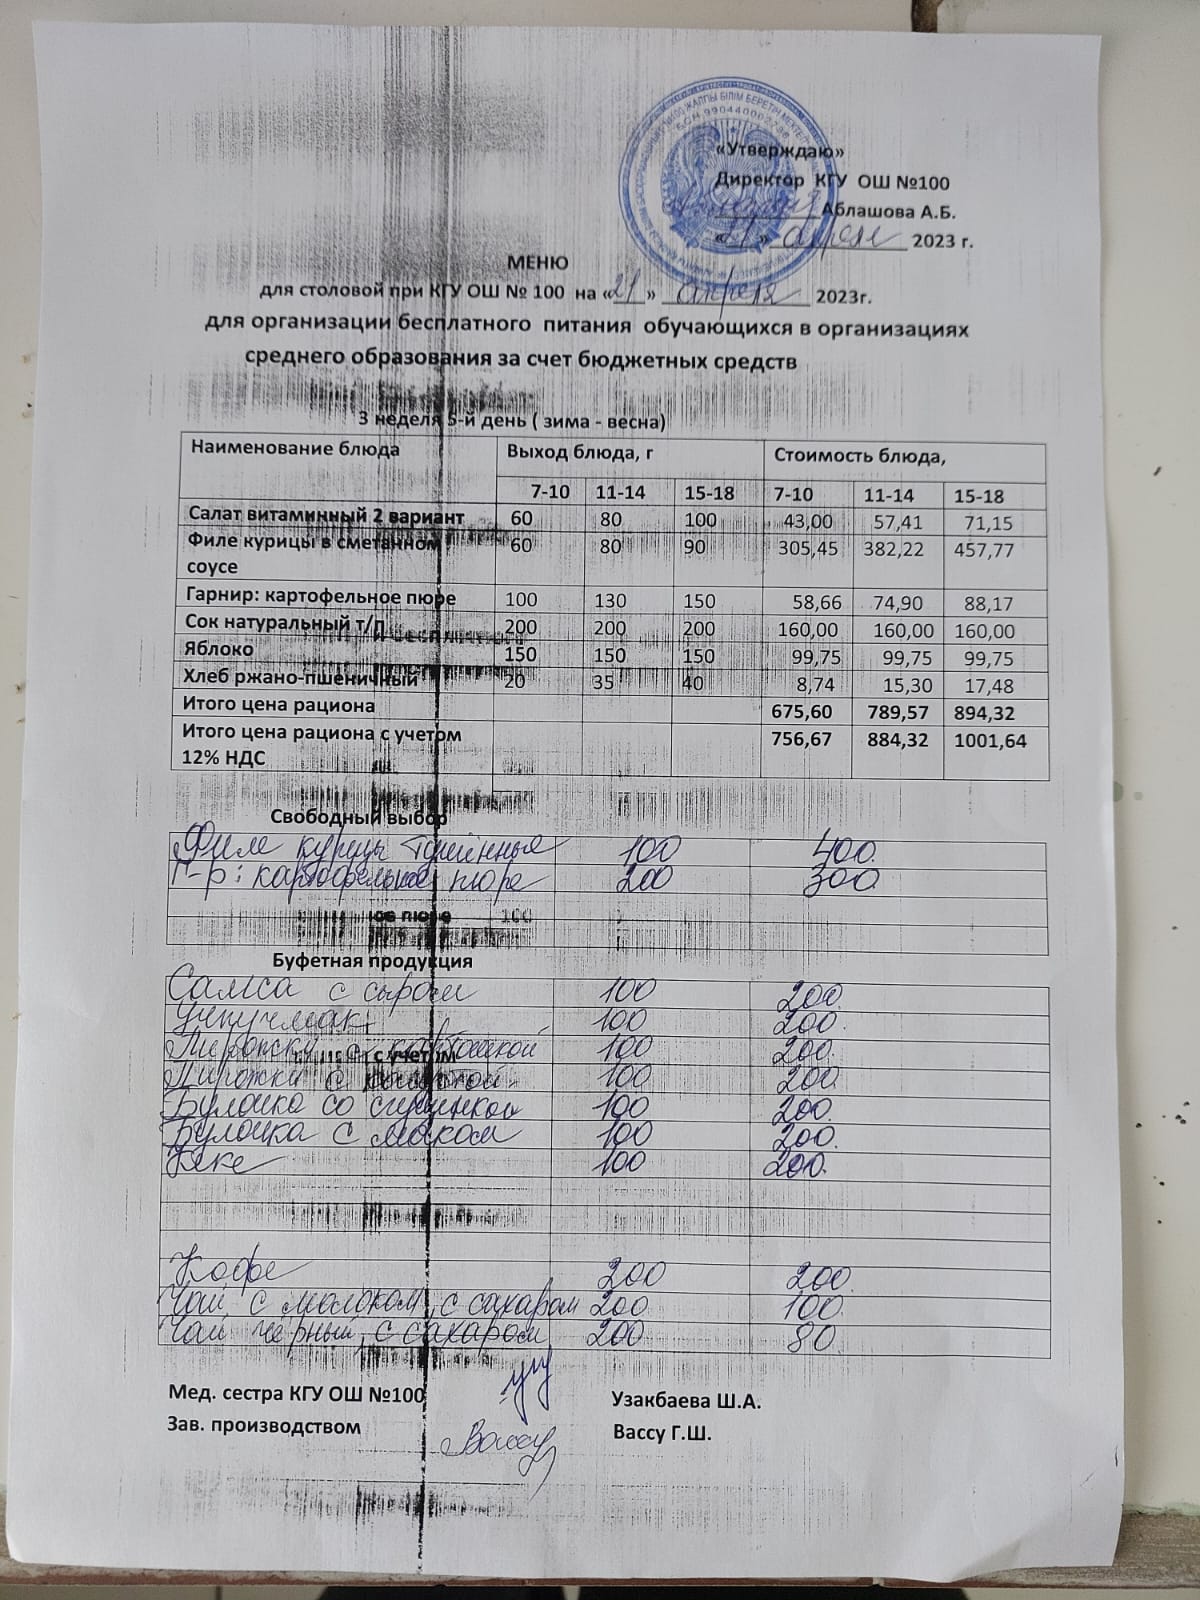 «Утверждаю»
Директор КГУ ОШ №100
Аблашова А.Б.
«21» апреля 2023 г.
МЕНЮ
для столовой при КГУ ОШ № 100 на «21» апреля 2023г.
для организации бесплатного питания обучающихся в организациях
среднего образования за счет бюджетных средств
3 неделя 5-й день ( зима - весна)
Наименование блюда Выход блюда, г Стоимость блюда,
7-10 11-14 15-18 7-10 11-14 15-18
Салат витаминный 2 вариант 60 80 100 43,00 57,41 71,15
Филе курицы в сметанном 60 80 90 305,45 382,22 457,77
соусе
Гарнир: картофельное пюре 100 130 150 58,66 74,90 88,17
Сок натуральный т/п 200 200 200 160,00 160,00 160,00
Яблоко 150 150 150 99,75 99,75 99,75
Хлеб ржано-пшеничный 20 35 40 8,74 15,30 17,48
Итого цена рациона 675,60 789,57 894,32
Итого цена рациона с учетом 756,67 884,32 1001,64
12% НДС
Свободный выбор
Филе курицы тушенные 100 400.
Г-р: картофельное пюре 200 300
ное пюре 100
Буфетная продукция
Самса с сыром 100 200.
Учпучмак 100 200.
Пирожки с картошкой 100 200.
с учетом
Пирожки с капустой. 100 200
Булочка со сгущенкой 100 200.
Булочка с маком 100 200.
Кекс 100 200.
Кофе 200 200
Чай с молоком, с сахаром 200 100
Чай черный, с сахаром 200 80
Мед. сестра КГУ ОШ №100 Узакбаева Ш.А.
Зав. производством Вассу Вассу Г.Ш.